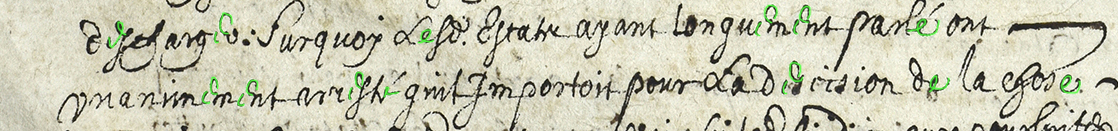 descharger. Surquoy Lesd. Estatz ayant longuement parlé ont
unanimement arresté quil Importoit pour La decision de la chose